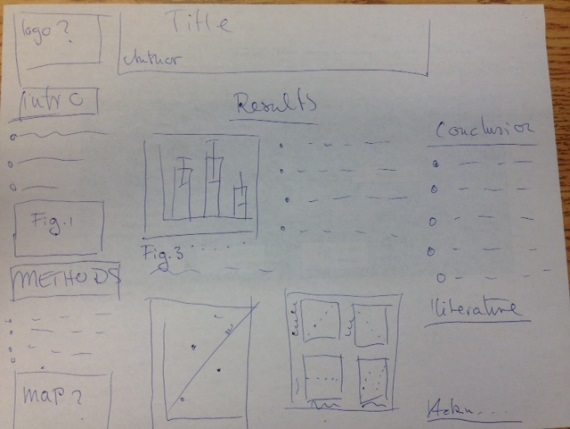 logo?
Title
Author
intro
Fig.1
METHODS
MAP?
Results
Fig.3
Conclusion
literature
Ackn...